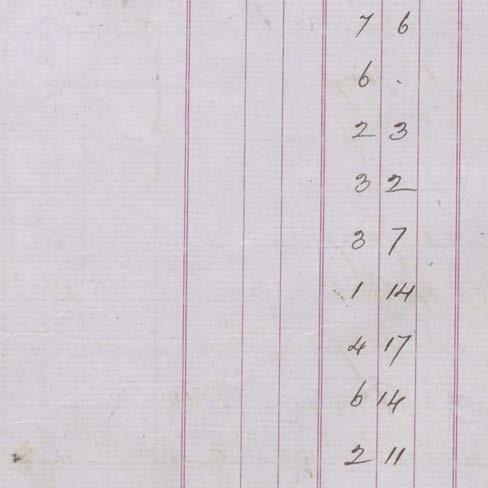 7 6
6 .
2 3
3 2
3 7
1 14
4 17
6 14
2 11